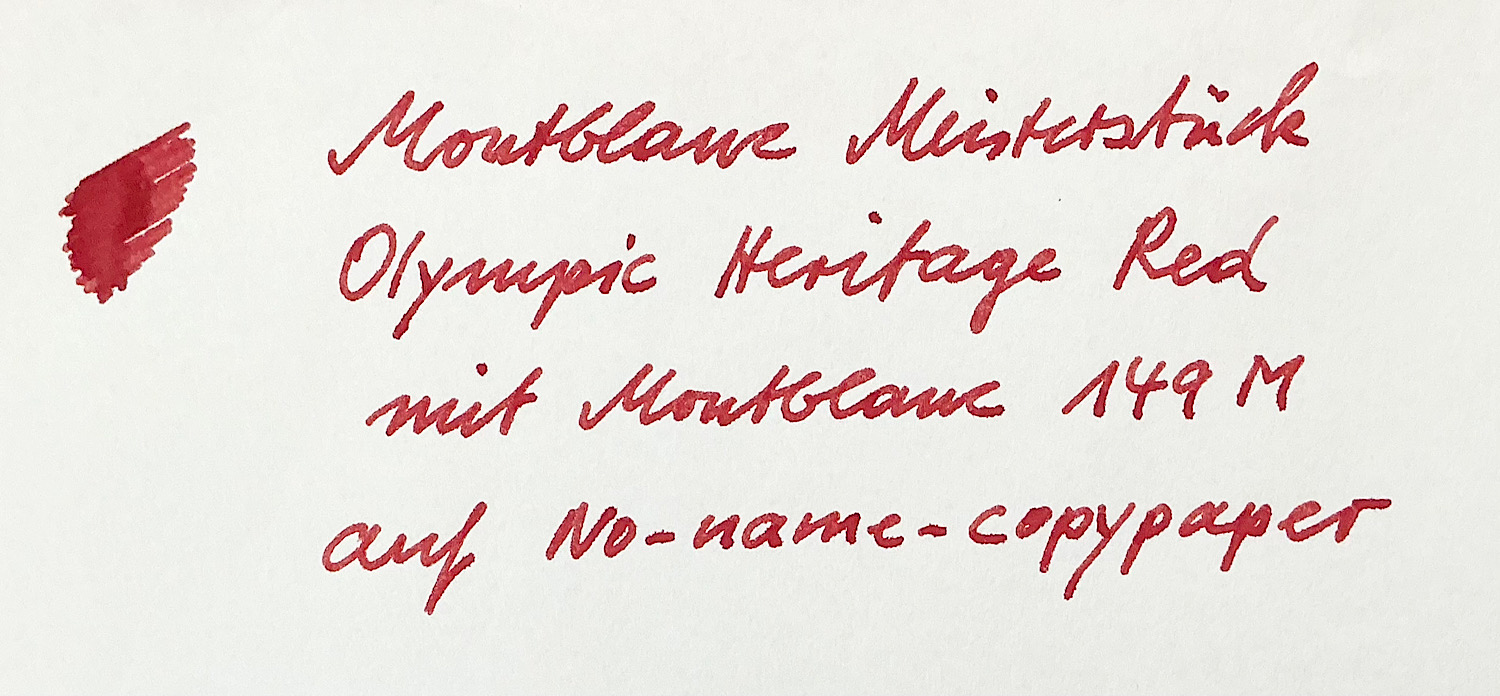 Montblanc Meisterstück
Olympic Heritage Red
mit Montblanc 149 M
auf No-name-copypaper